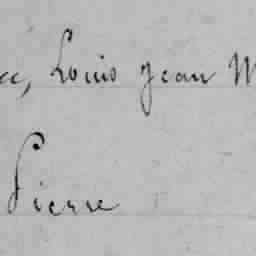 Louis Jean
Pierre